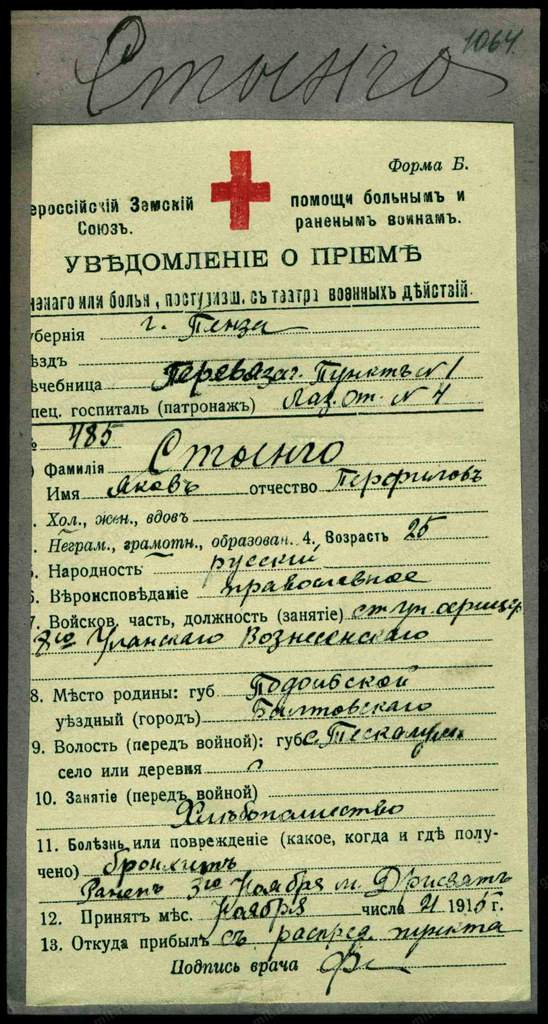 1064.
Стынго
Форма Б.
ероссійскій Земскій помощи больнымъ и
Союзъ. раненымъ воинамъ.
УВѢДОМЛЕНІЕ О ПРІЕМѢ
ненаго или больн, поступивш. съ театра военныхъ дѣйствій.
уберния г. Пенза
ѣздъ
ѣчебница Перевязоч. Пунктъ N 1
пец. госпиталь (патронажъ) Лаз. от. N 4
№ 485
) Фамилія Стынго
Имя Яковъ отчество Перфиловъ
. Хол., жен., вдовъ
. Неграм., грамотн., образован. 4. Возрастъ 25
. Народность русскій
6. Вѣроисповѣданіе православное
7. Войсков. часть, должность (занятіе) ст ун. офицер
8го Уланскаго Вознесенскаго
8. Мѣсто родины: губ Подольской
уѣздный (городъ) Балтовскаго
9. Волость (передъ войной): губ с.
село или деревня
10. Занятіе (передъ войной)
Хлѣбопашество
11. Болѣзнь или поврежденіе (какое, когда и гдѣ полу-
чено) бронхитъ
Раненъ 3го Ноября м. Дрисвятъ
12. Принятъ мѣс. Ноября числа 21 1915 г.
13. Откуда прибылъ съ распред. пункта
Подпись врача